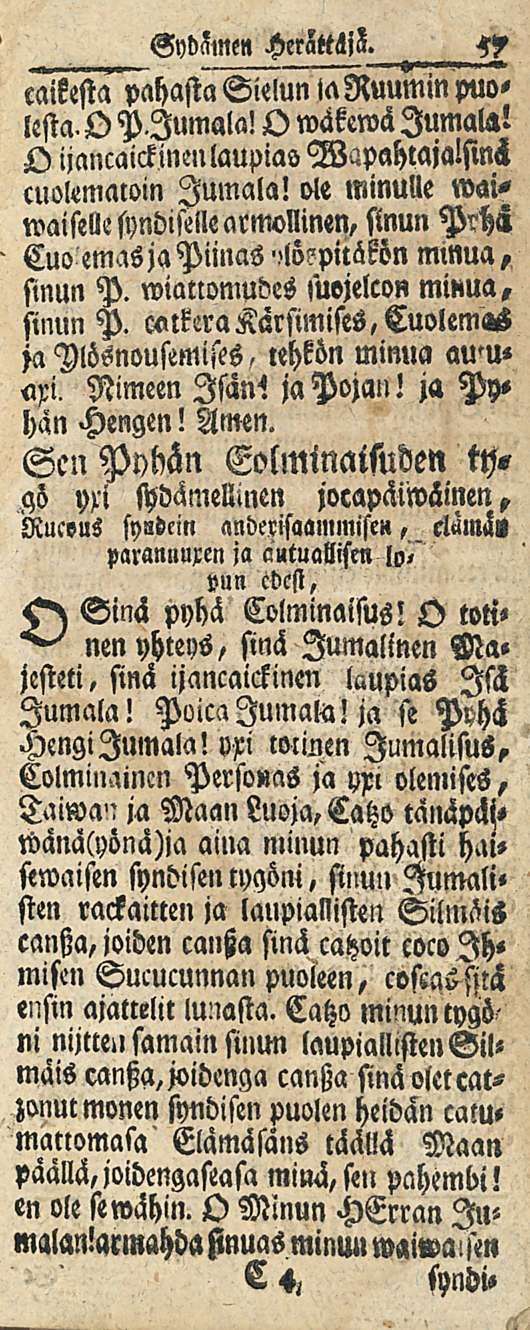 Sydämen Herättäjä. 57
caikesta pahasta Sielun ja Ruumin puo-
lesta. O P. Jumala! O wäkewä Jumala!
O ijancaickinen laupias Wapahtaja! sinä
cuolematoin Jumala! ole minulle wai-
waiselle syndiselle armollinen, sinun Pyhä
Cuolemas ja Piinas ylöspitäkön minua,
sinun P. wiattomudes suojelcon minua,
sinun P. catkera Kärsimises, Cuolemas
ja Ylösnousemises, tehkön minua autu-
axi. Nimeen Isän! ja Pojan! ja Py-
hän Hengen! Amen.
Sen Pyhän Colminaisuden ty-
gö yxi sydämellinen jocapäiwäinen,
Rucous syndein andexisaammisen, elämän
parannuxen ja autuallisen lo-
pun edest,
O Sinä pyhä Colminaisus! O toti-
nen yhteys, sinä Jumalinen Ma-
jesteti, sinä ijancaickinen laupias Isä
Jumala! Poica Jumala! ja se Pyhä
Hengi Jumala! yxi totinen Jumalisus,
Colminainen Personas ja yxi olemises,
Taiwan ja Maan Luoja, Catzo tänäpäi-
wänä (yönä) ja aina minun pahasti hai-
sewaisen syndisen tygöni, sinun Jumali-
sten rackaitten ja laupiallisten Silmäis
canßa, joiden canßa sinä catzoit coco Ih-
misen Sucucunnan puoleen, coscas sitä
ensin ajattelit lunasta. Catzo minun tygö-
ni nijtten samain sinun laupiallisten Sil-
mäis canßa, joidenga canßa sinä olet cat-
zonut monen syndisen puolen heidän catu-
mattomasa Elämäsäns täällä Maan
päällä, joidengaseasa minä, sen pahembi!
en ole se wähin. O Minun HErran Ju-
malan! armahda sinuas minun waiwaisen
C 4, syndi-